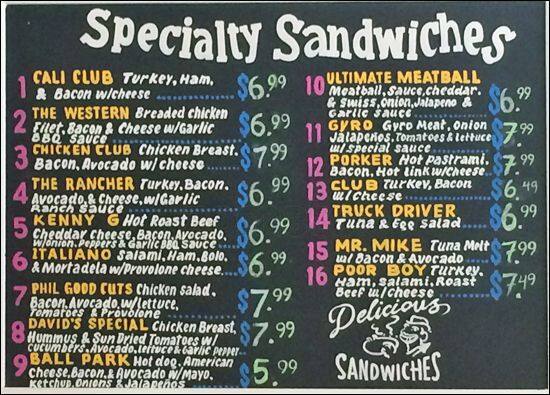 Specialty Sandwiches
1 CALI CLUB Turkey, Ham,
& Bacon w/cheese $6.99
2 THE WESTERN Breaded chicken
Filet, Bacon & Cheese w/Garlic
BBQ sauce $6.99
3 CHICKEN CLUB Chicken Breast,
Bacon, Avocado w/cheese $7.99
4 THE RANCHER Turkey, Bacon,
Avocado, & Cheese, w/Garlic
Ranch sauce $6.99
5 KENNY G Hot Roast Beef
Cheddar Cheese, Bacon, Avocado,
w/onion, Peppers & Garlic BBQ Sauce $6.99
6 ITALIANO Salami, Ham, Bolo,
& Mortadela w/Provolone cheese $6.99
7 PHIL GOOD CUTS Chicken salad,
Bacon, Avocado, w/lettuce,
Tomatoes & Provolone $7.99
8 DAVID'S SPECIAL Chicken Breast,
Hummus & Sun Dried Tomatoes w/
cucumbers, Avocado, lettuce & Garlic Pepper $7.99
9 BALL PARK Hot dog, American
Cheese, Bacon, & Avocado w/Mayo,
Ketchup, Onions & Jalapeños $5.99
10 ULTIMATE MEATBALL
Meatball, Sauce, cheddar,
& Swiss, Onion, Jalapeno &
Garlic sauce $6.99
11 GYRO Gyro Meat, onion
Jalapeños, Tomatoes & lettuce
w/special sauce $7.99
12 PORKER Hot pastrami,
Bacon, Hot Link w/cheese $7.99
13 CLUB Turkey, Bacon
w/cheese $6.49
14 TRUCK DRIVER
Tuna & Egg salad $6.99
15 MR. MIKE Tuna Melt
w/ Bacon & Avocado $7.99
16 POOR BOY Turkey,
Ham, salami, Roast
Beef w/cheese $7.49
Delicious
SANDWICHES